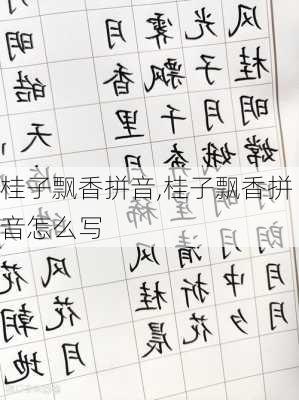 桂子飘香拼音,桂子飘香拼
音怎么写
风光霁月
桂子飘香
明月千里
嫦娥奔月
明星稀
朗月清风
月中折桂
月夕花晨
明
皓
天
风花
花朝
月地